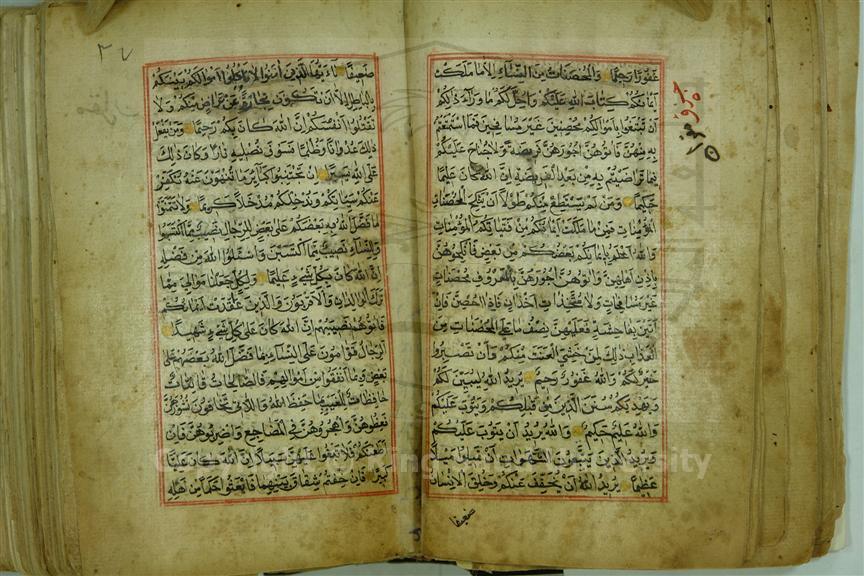 غفورا رحيما والمحصنات من النساء إلا ما ملكت
أيمانكم كتاب الله عليكم وأحل لكم ما وراء ذلكم
أن تبتغوا بأموالكم محصنين غير مسافحين فما استمتعتم
به منهن فآتوهن أجورهن فريضة ولا جناح عليكم
فيما تراضيتم به من بعد الفريضة إن الله كان عليما
حكيما ومن لم يستطع منكم طولا أن ينكح المحصنات
المؤمنات فمن ما ملكت أيمانكم من فتياتكم المؤمنات
والله أعلم بإيمانكم بعضكم من بعض فانكحوهن
بإذن أهلهن وآتوهن أجورهن بالمعروف محصنات
غير مسافحات ولا متخذات أخدان فإذا أحصن فإن
أتين بفاحشة فعليهن نصف ما على المحصنات من
العذاب ذلك لمن خشي العنت منكم وأن تصبروا
خير لكم والله غفور رحيم يريد الله ليبين لكم
ويهديكم سنن الذين من قبلكم ويتوب عليكم
والله عليم حكيم والله يريد أن يتوب عليكم
ويريد الذين يتبعون الشهوات أن تميلوا ميلا
عظيما يريد الله أن يخفف عنكم وخلق الإنسان
ضعيفا
جزو
٥
٣٧
ضعيفا يا أيها الذين آمنوا لا تأكلوا أموالكم بينكم
بالباطل إلا أن تكون تجارة عن تراض منكم ولا
تقتلوا أنفسكم إن الله كان بكم رحيما ومن يفعل
ذلك عدوانا وظلما فسوف نصليه نارا وكان ذلك
على الله يسيرا إن تجتنبوا كبائر ما تنهون عنه نكفر
عنكم سيئاتكم وندخلكم مدخلا كريما ولا تتمنوا
ما فضل الله به بعضكم على بعض للرجال نصيب مما اكتسبوا
وللنساء نصيب مما اكتسبن واسئلوا الله من فضله
إن الله كان بكل شيء عليما ولكل جعلنا موالي مما
ترك الوالدان والأقربون والذين عقدت أيمانكم
فآتوهم نصيبهم إن الله كان على كل شيء شهيدا
الرجال قوامون على النساء بما فضل الله بعضهم على
بعض وبما أنفقوا من أموالهم فالصالحات قانتات
حافظات للغيب بما حفظ الله واللاتي تخافون نشوزهن
فعظوهن واهجروهن في المضاجع واضربوهن فإن
أطعنكم فلا تبغوا عليهن سبيلا إن الله كان عليا
كبيرا فإن خفتم شقاق بينهما فابعثوا حكما من أهله